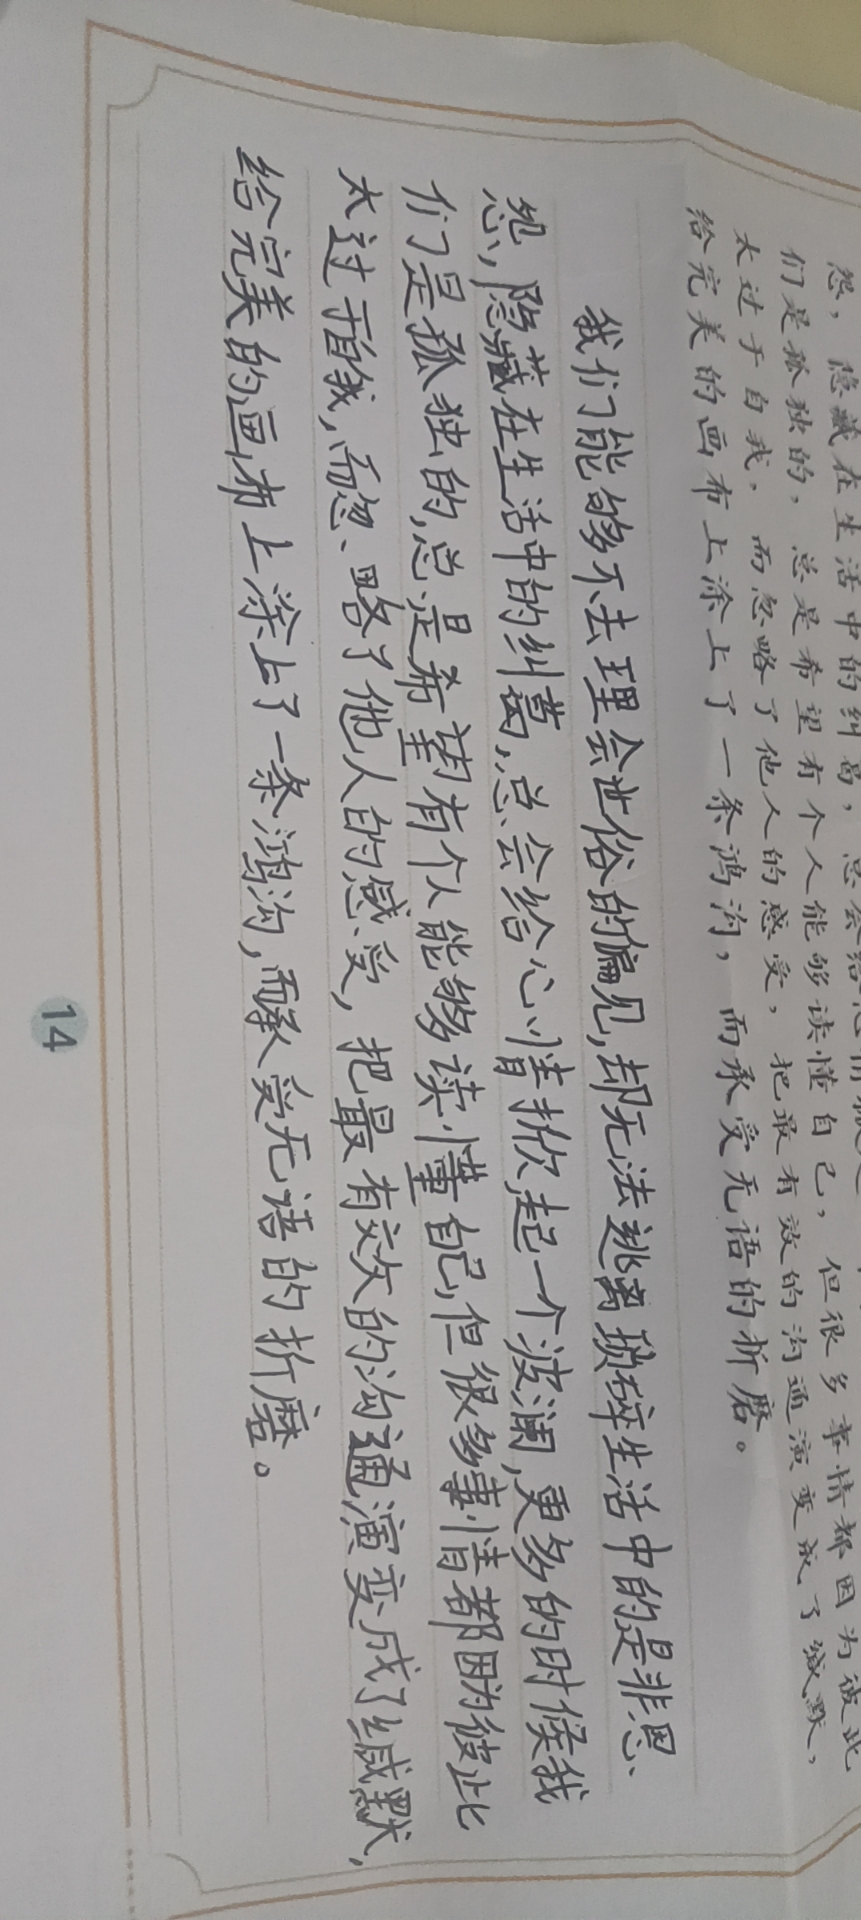 怨，隐藏在生活中的纠葛，总会给心情掀起
们是孤独的，总是希望有个人能够读懂自己，但很多事情都因为彼此
太过于自我，而忽略了他人的感受，把最有效的沟通演变成了缄默，
给完美的画布上涂上了一条鸿沟，而承受无语的折磨。
我们能够不去理会世俗的偏见，却无法逃离琐碎生活中的是非恩、
怨，隐藏在生活中的纠葛，总会给心情掀起一个波澜，更多的时候我
们是孤独的，总是希望有个人能够读懂自己，但很多事情都因为彼此
太过于自我，而忽、略了他人的感受，把最有效的沟通演变成了缄默，
给完美的画布上涂上了一条鸿沟，而承受无语的折磨。
14